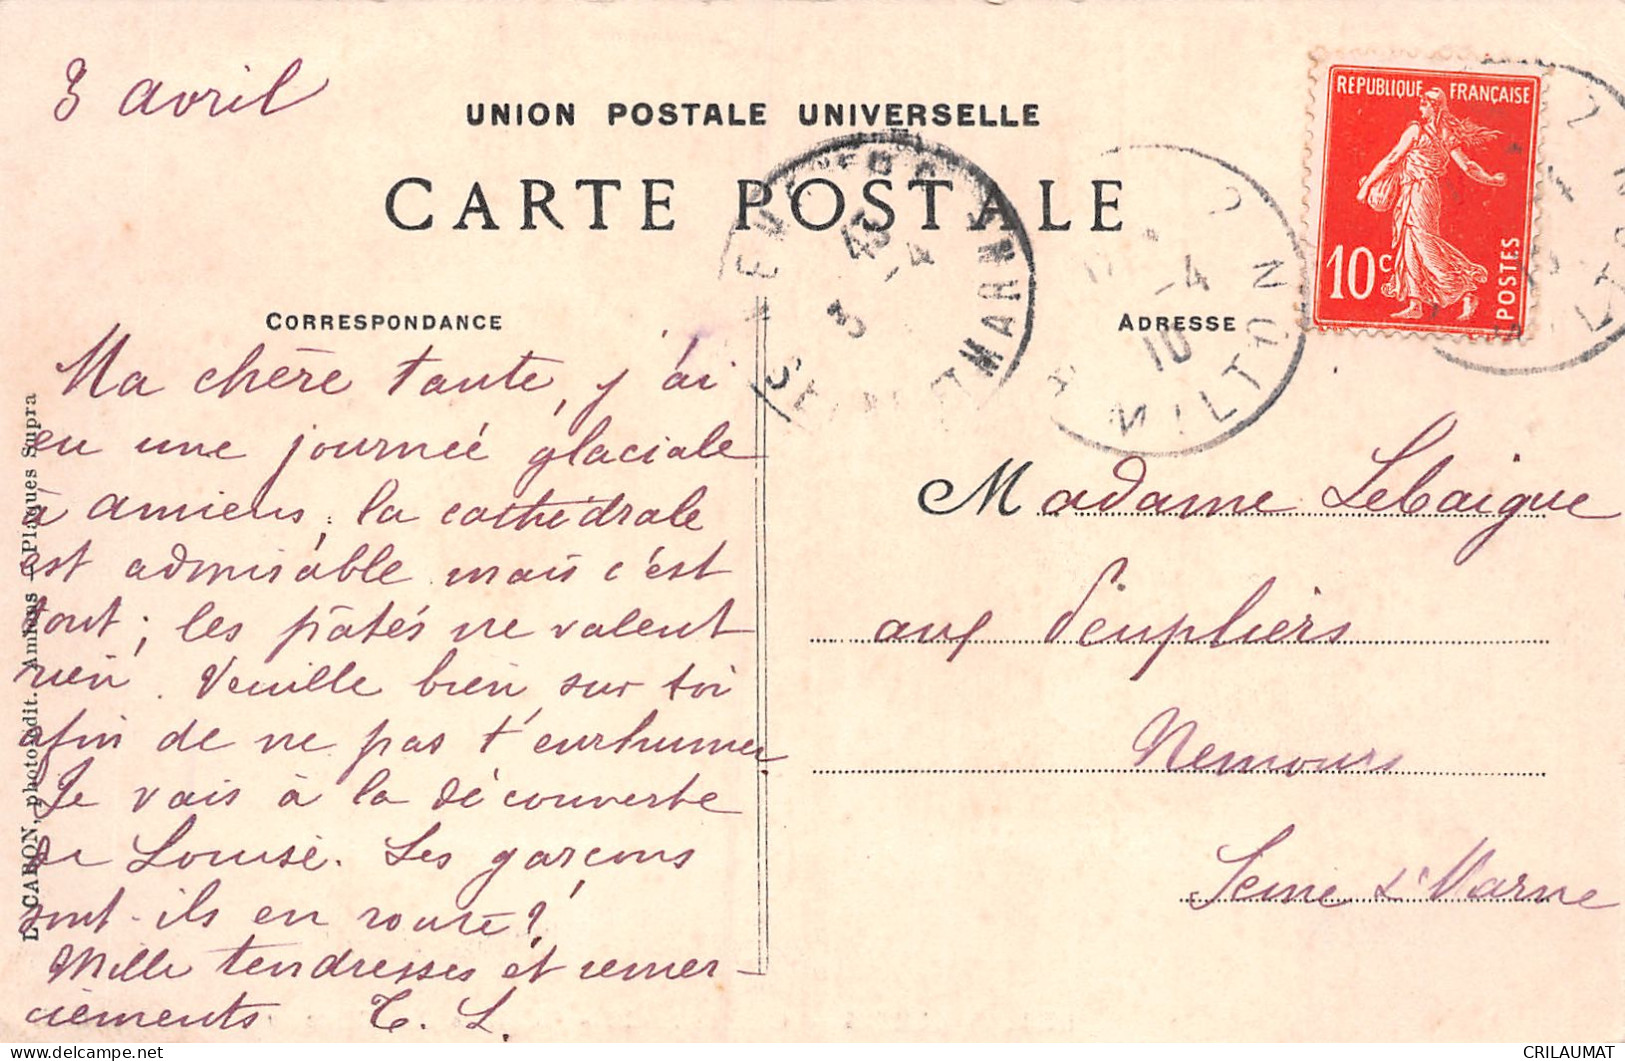 3 avril
UNION POSTALE UNIVERSELLE
CARTE POSTALE
CORRESPONDANCE
ADRESSE
REPUBLIQUE FRANÇAISE
10c
POSTES
NEMOURS
SEINE ET MARNE
3 -4
-4
10
MILTON
Ma chère tante, j'ai
eu une journée glaciale
à amiens, la cathédrale
est admirable mais c'est
tout; les pâtés ne valent
rien. Veuille bien sur toi
afin de ne pas t'enrhumer
Je vais à la découverte
de Louise. Les garçons
sont-ils en route?
Mille tendresses et remer-
ciements T. L.
Madame Lebaigue
aux Peupliers
Nemours
Seine & Marne
L. CARON, photo-édit. Amiens - Plaques Supra
CRILAUMAT